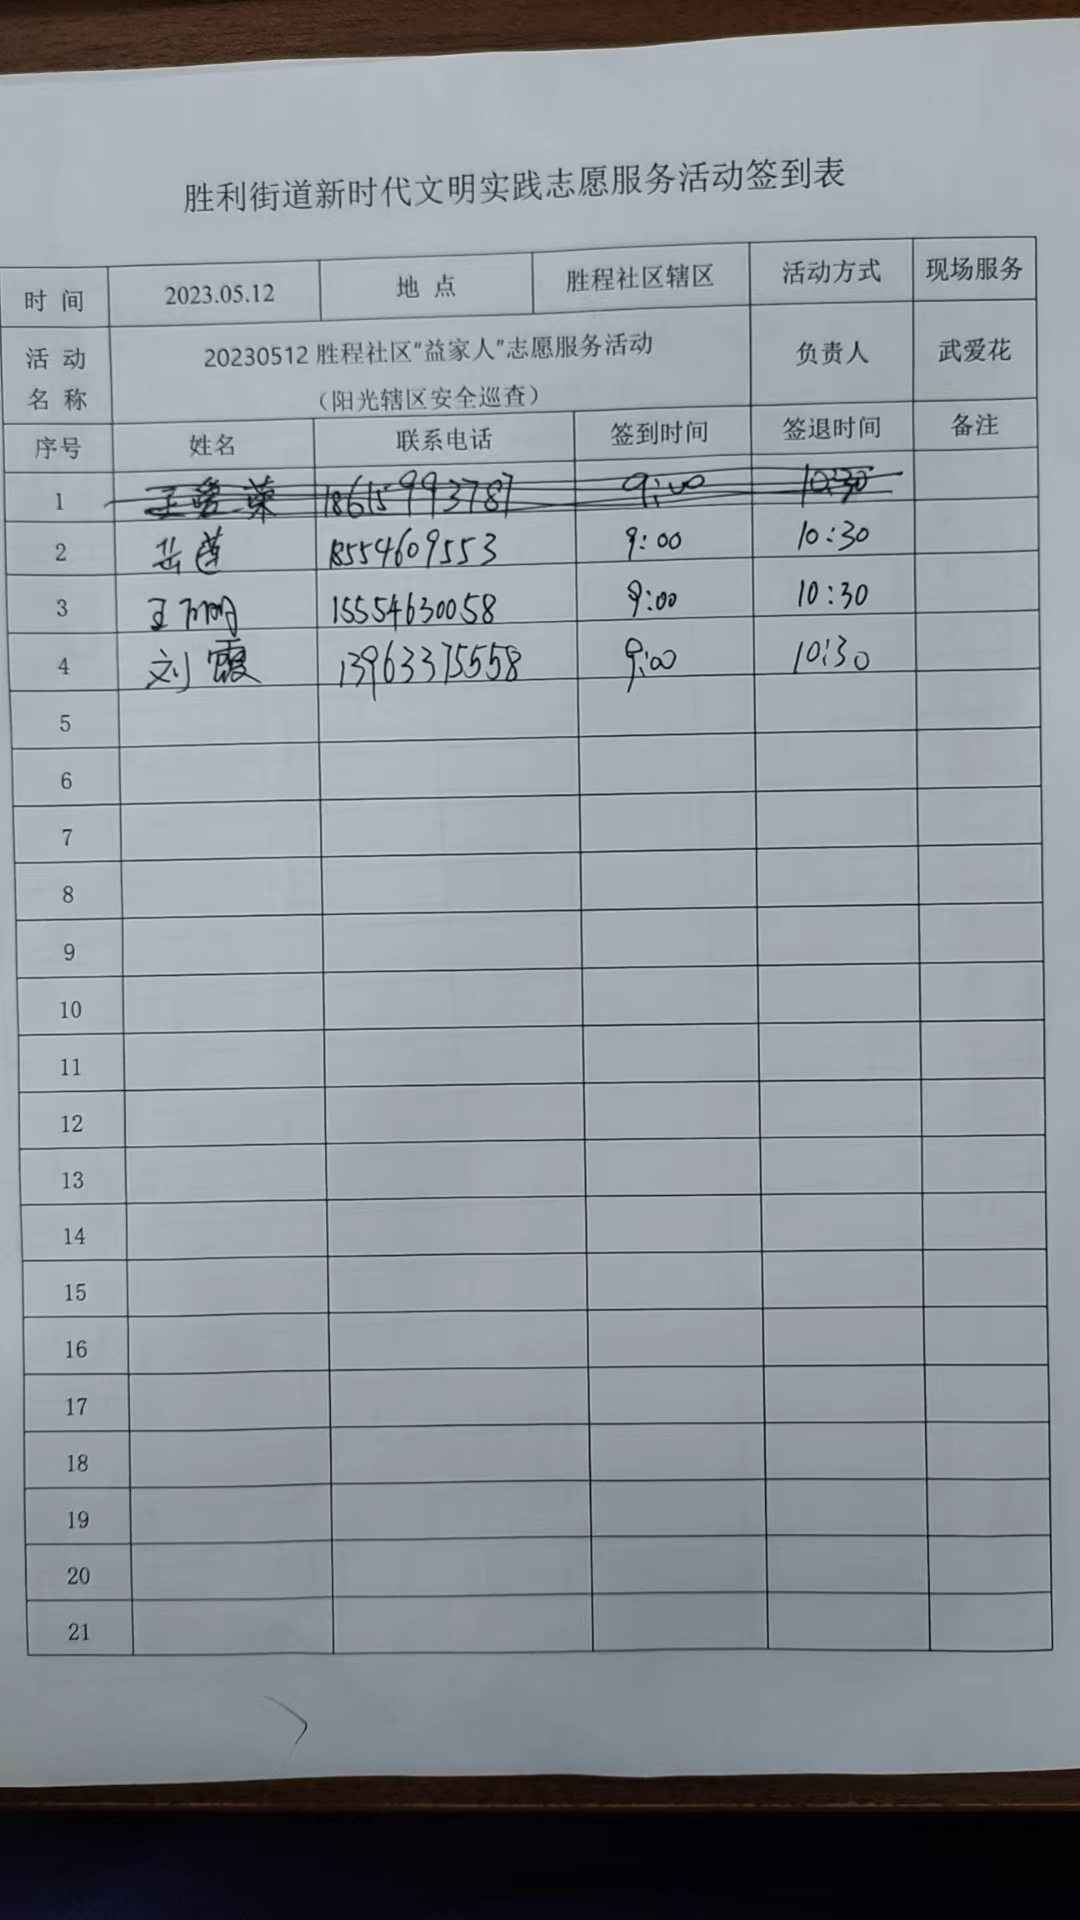 胜利街道新时代文明实践志愿服务活动签到表
时 间 2023.05.12 地 点 胜程社区辖区 活动方式 现场服务
活 动 名 称 20230512 胜程社区“益家人”志愿服务活动 负责人 武爱花
（阳光辖区安全巡查）
序号 姓名 联系电话 签到时间 签退时间 备注
1 18615993787 9:00 10:30
2 岳莲 18554609553 9:00 10:30
3 15554630058 9:00 10:30
4 刘霞 13963375558 9:00 10:30
5
6
7
8
9
10
11
12
13
14
15
16
17
18
19
20
21